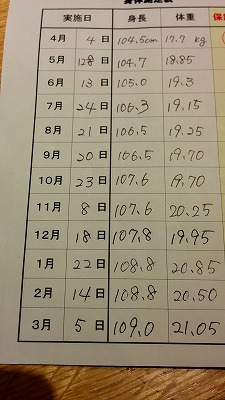 身体測定表
実施日 身長 体重 保
4月 4日 104.5cm 17.7 kg
5月 28日 104.7 18.85
6月 13日 105.0 19.3
7月 24日 106.3 19.15
8月 21日 106.5 19.25
9月 20日 106.5 19.70
10月 23日 107.6 19.70
11月 8日 107.6 20.25
12月 18日 107.8 19.95
1月 22日 108.8 20.85
2月 14日 108.8 20.50
3月 5日 109.0 21.05